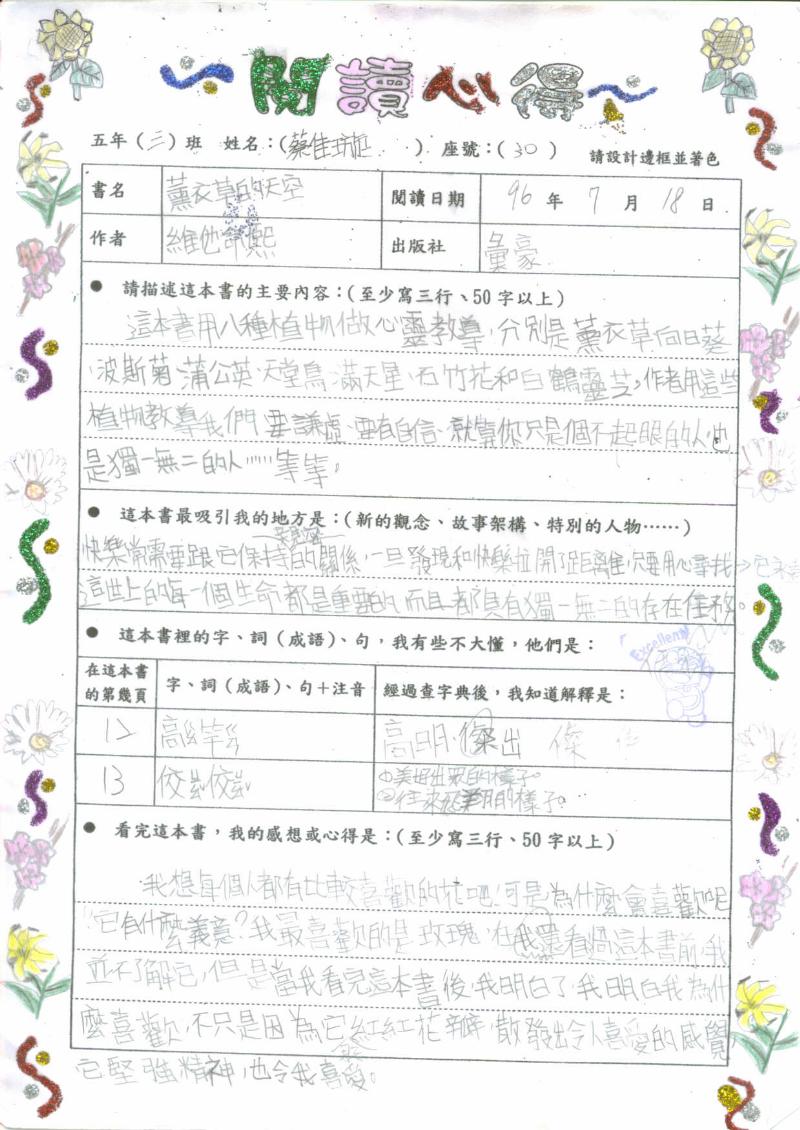 閱讀心得
五年(三)班 姓名:(蔡佳 ) 座號:(30) 請設計邊框並著色
書名 薰衣草的天空 閱讀日期 96年7月18日
作者 維他命熙 出版社 彙豪
● 請描述這本書的主要內容:(至少寫三行、50字以上)
這本書用八種植物做心靈教導,分別是薰衣草、向日葵
、波斯菊、蒲公英、天堂鳥、滿天星、石竹花和白鶴靈芝。作者用這些
植物教導我們,要謙虛、要有自信、就算你只是個不起眼的人,也
是獨一無二的人……等等。
● 這本書最吸引我的地方是:(新的觀念、故事架構、特別的人物……)
快樂常需要跟它保持親密的關係,一旦發現和快樂拉開了距離,只要用心尋找→它
這世上的每一個生命都是重要的,而且都具有獨一無二的存在任務。
● 這本書裡的字、詞(成語)、句,我有些不大懂,他們是:
Excellent
在這本書的第幾頁 字、詞(成語)、句+注音 經過查字典後,我知道解釋是:
12 高 高明、傑出 傑
13 佼ㄐㄧㄠ佼ㄐㄧㄠ ①美好出眾的樣子。
②往來飛翔的樣子。
● 看完這本書,我的感想或心得是:(至少寫三行、50字以上)
我想每個人都有比較喜歡的花吧!可是為什麼會喜歡呢
?它有什麼義意?我最喜歡的是玫瑰,在我還看過這本書前,我
並不了解它,但是當我看完這本書後,我明白了,我明白我為什
麼喜歡,不只是因為它紅紅花瓣,散發出令人喜愛的感覺
它堅強精神,也令我喜愛。